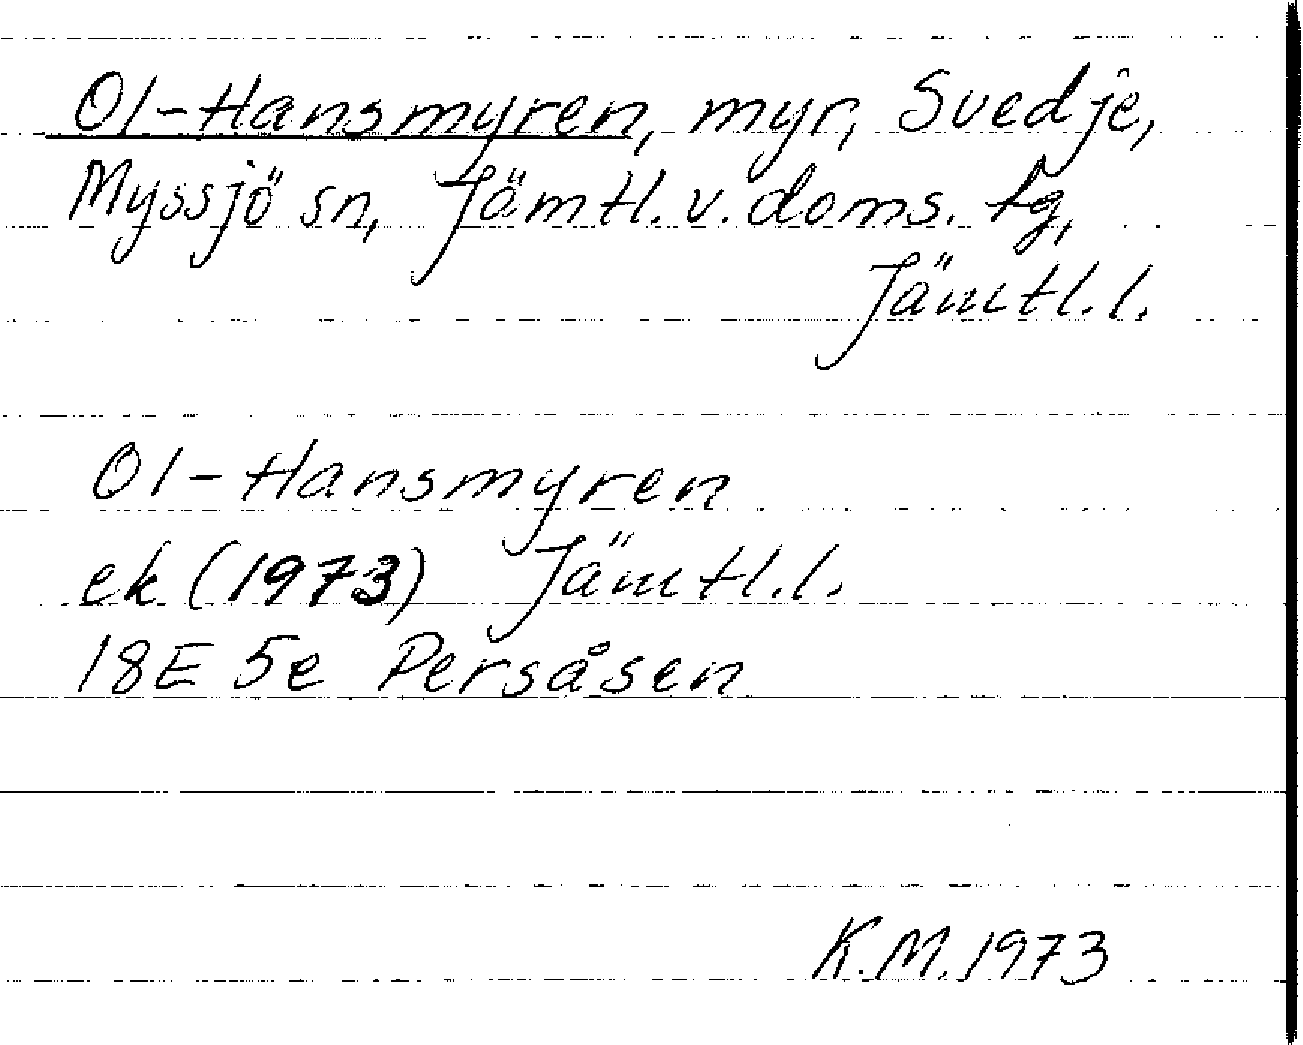 Ol-Hansmyren, myr, Svedje,
Myssjö sn, Jämtl. v. doms. tg,
Jämtl. l.
Ol-Hansmyren
ek (1973) Jämtl. l.
18E 5e Persåsen
K.M. 1973